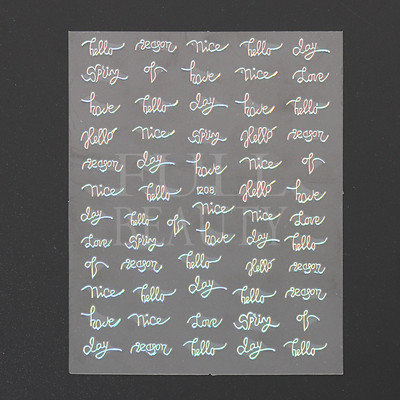 hello season Nice hello day
Spring of have Nice Love
have hello day have have
Hello Nice Spring Hello season
season day have Nice of
Nice hello 208 Hello have
day hello of Nice Nice Love
Love Spring have day hello
of season hello Hello season
Nice hello day hello season
have Nice Love Spring of
day season hello day hello
FULL
BEAUTY